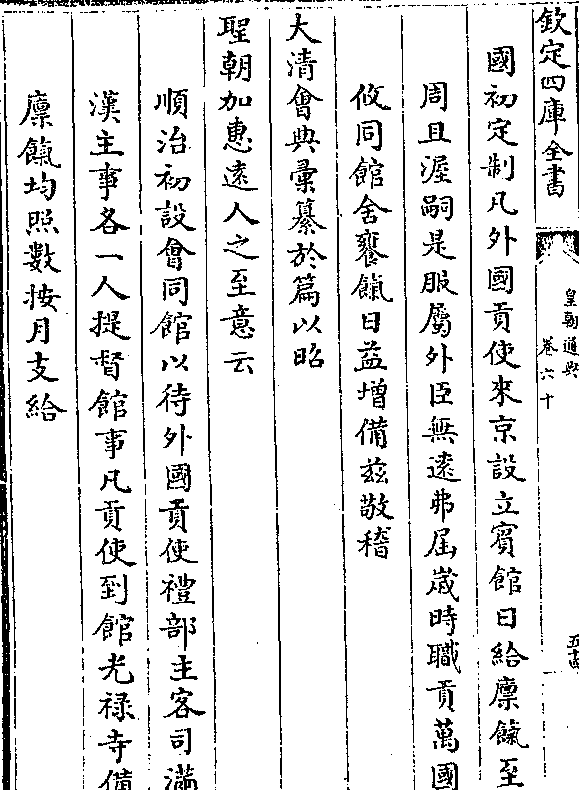 欽定四庫全書
皇朝通典
卷六十
國初定制凡外國貢使來京設立賓館日給廩餼至
周且渥嗣是服屬外臣無遠弗屆歲時職貢萬國
攸同館舍饔餼日益增備兹敬稽
大清會典彚纂於篇以昭
聖朝加惠遠人之至意云
順治初設會同館以待外國貢使禮部主客司滿
漢主事各一人提督館事凡貢使到館光禄寺備
廩餼均照數按月支給